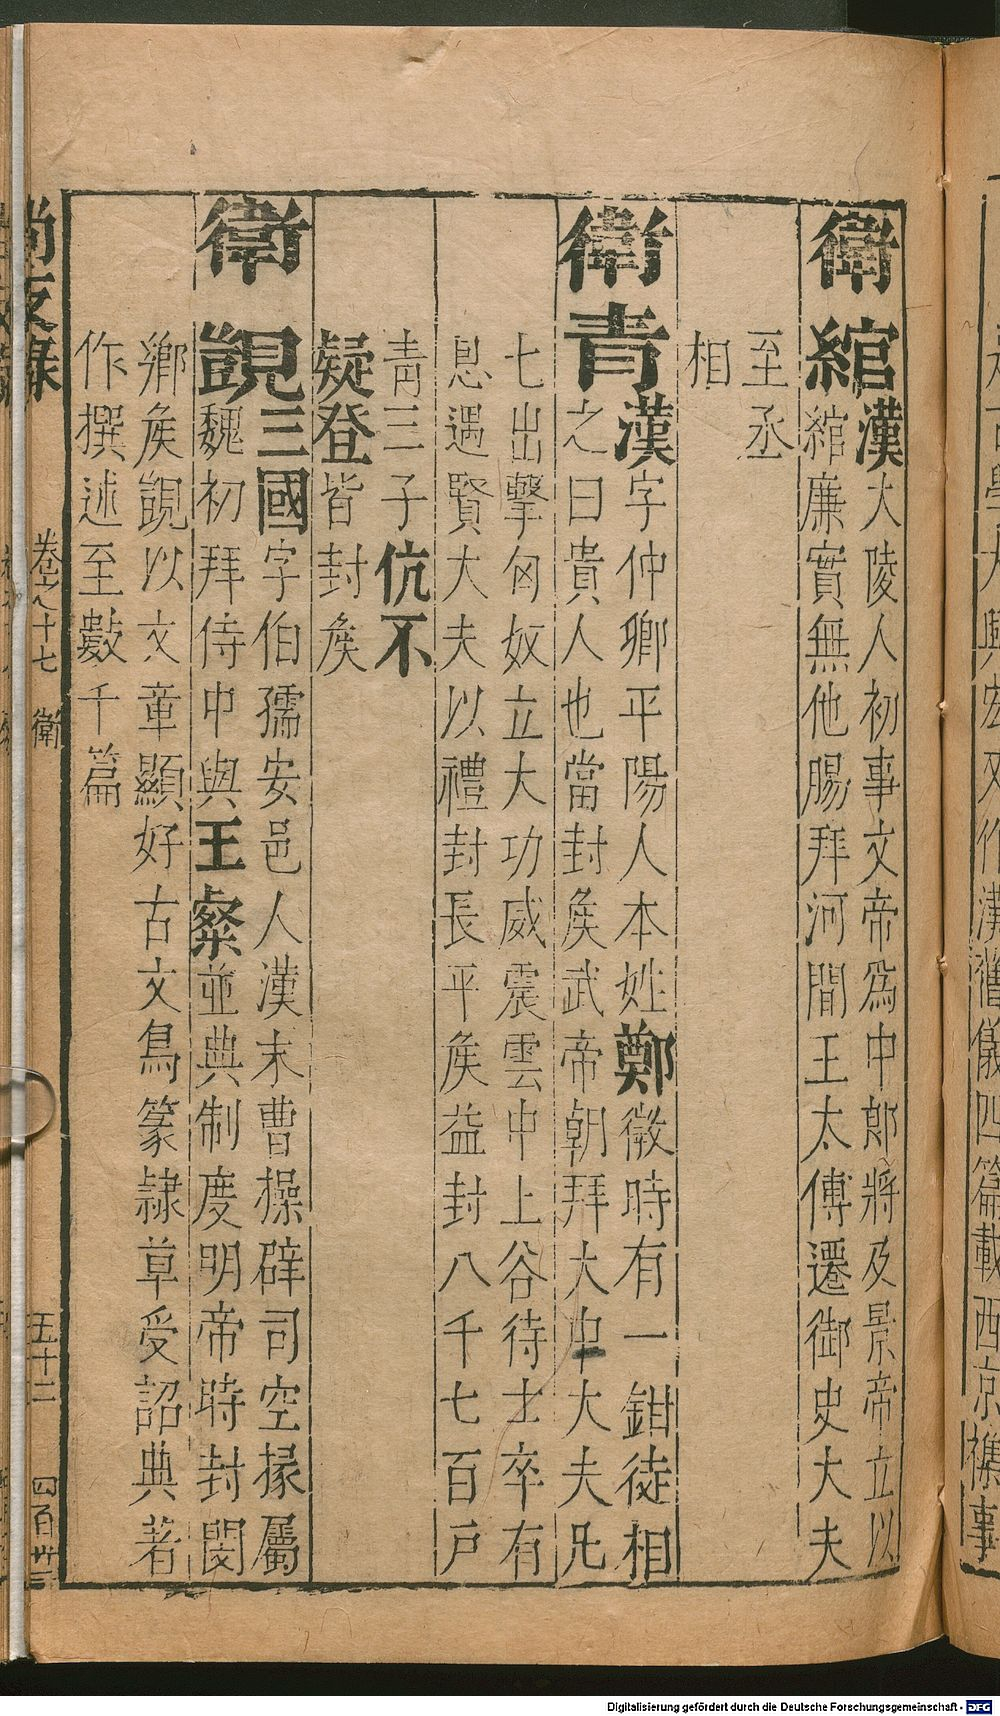 衛綰漢大陵人初事文帝為中郎將及景帝立以
綰廉實無他腸拜河間王太傅遷御史大夫
至丞
相
衛青漢字仲卿平陽人本姓鄭微時有一鉗徒相
之曰貴人也當封矦武帝朝拜大中大夫凡
七出擊匈奴立大功威震雲中上谷待士卒有
恩遇賢大夫以禮封長平矦益封八千七百戶
青三子伉不
疑登皆封矦
衛覬三國字伯孺安邑人漢末曹操辟司空掾屬
魏初拜侍中與王粲並典制度明帝時封閿
鄉矦覬以文章顯好古文鳥篆隷草受詔典著
作撰述至數千篇
尚友錄 卷之十七 衛 五十二 四百廿三
宏又作漢舊儀四篇載西京襍事
Digitalisierung gefördert durch die Deutsche Forschungsgemeinschaft - DFG